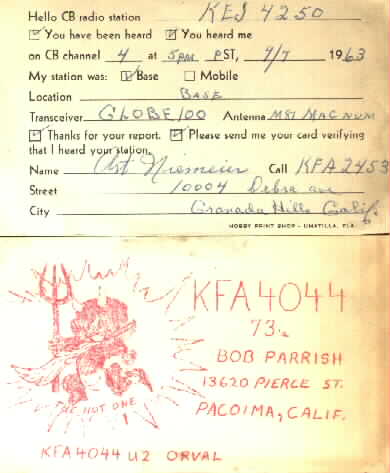 Hello CB radio station KEJ 4250
You have been heard You heard me
on CB channel 4 at 5PM PST, 9/7 1963
My station was: Base Mobile
Location BASE
Transceiver GLOBE 100 Antenna M81 MAGNUM
Thanks for your report. Please send me your card verifying
that I heard your station.
Name Art Niemeier Call KFA2453
Street 10004 Debra ave
City Granada Hills Calif.
HOBBY PRINT SHOP - UMATILLA, FLA.
KFA4044
73s
BOB PARRISH
13620 PIERCE ST.
PACOIMA, CALIF.
THE HOT ONE
KFA4044 U2 ORVAL